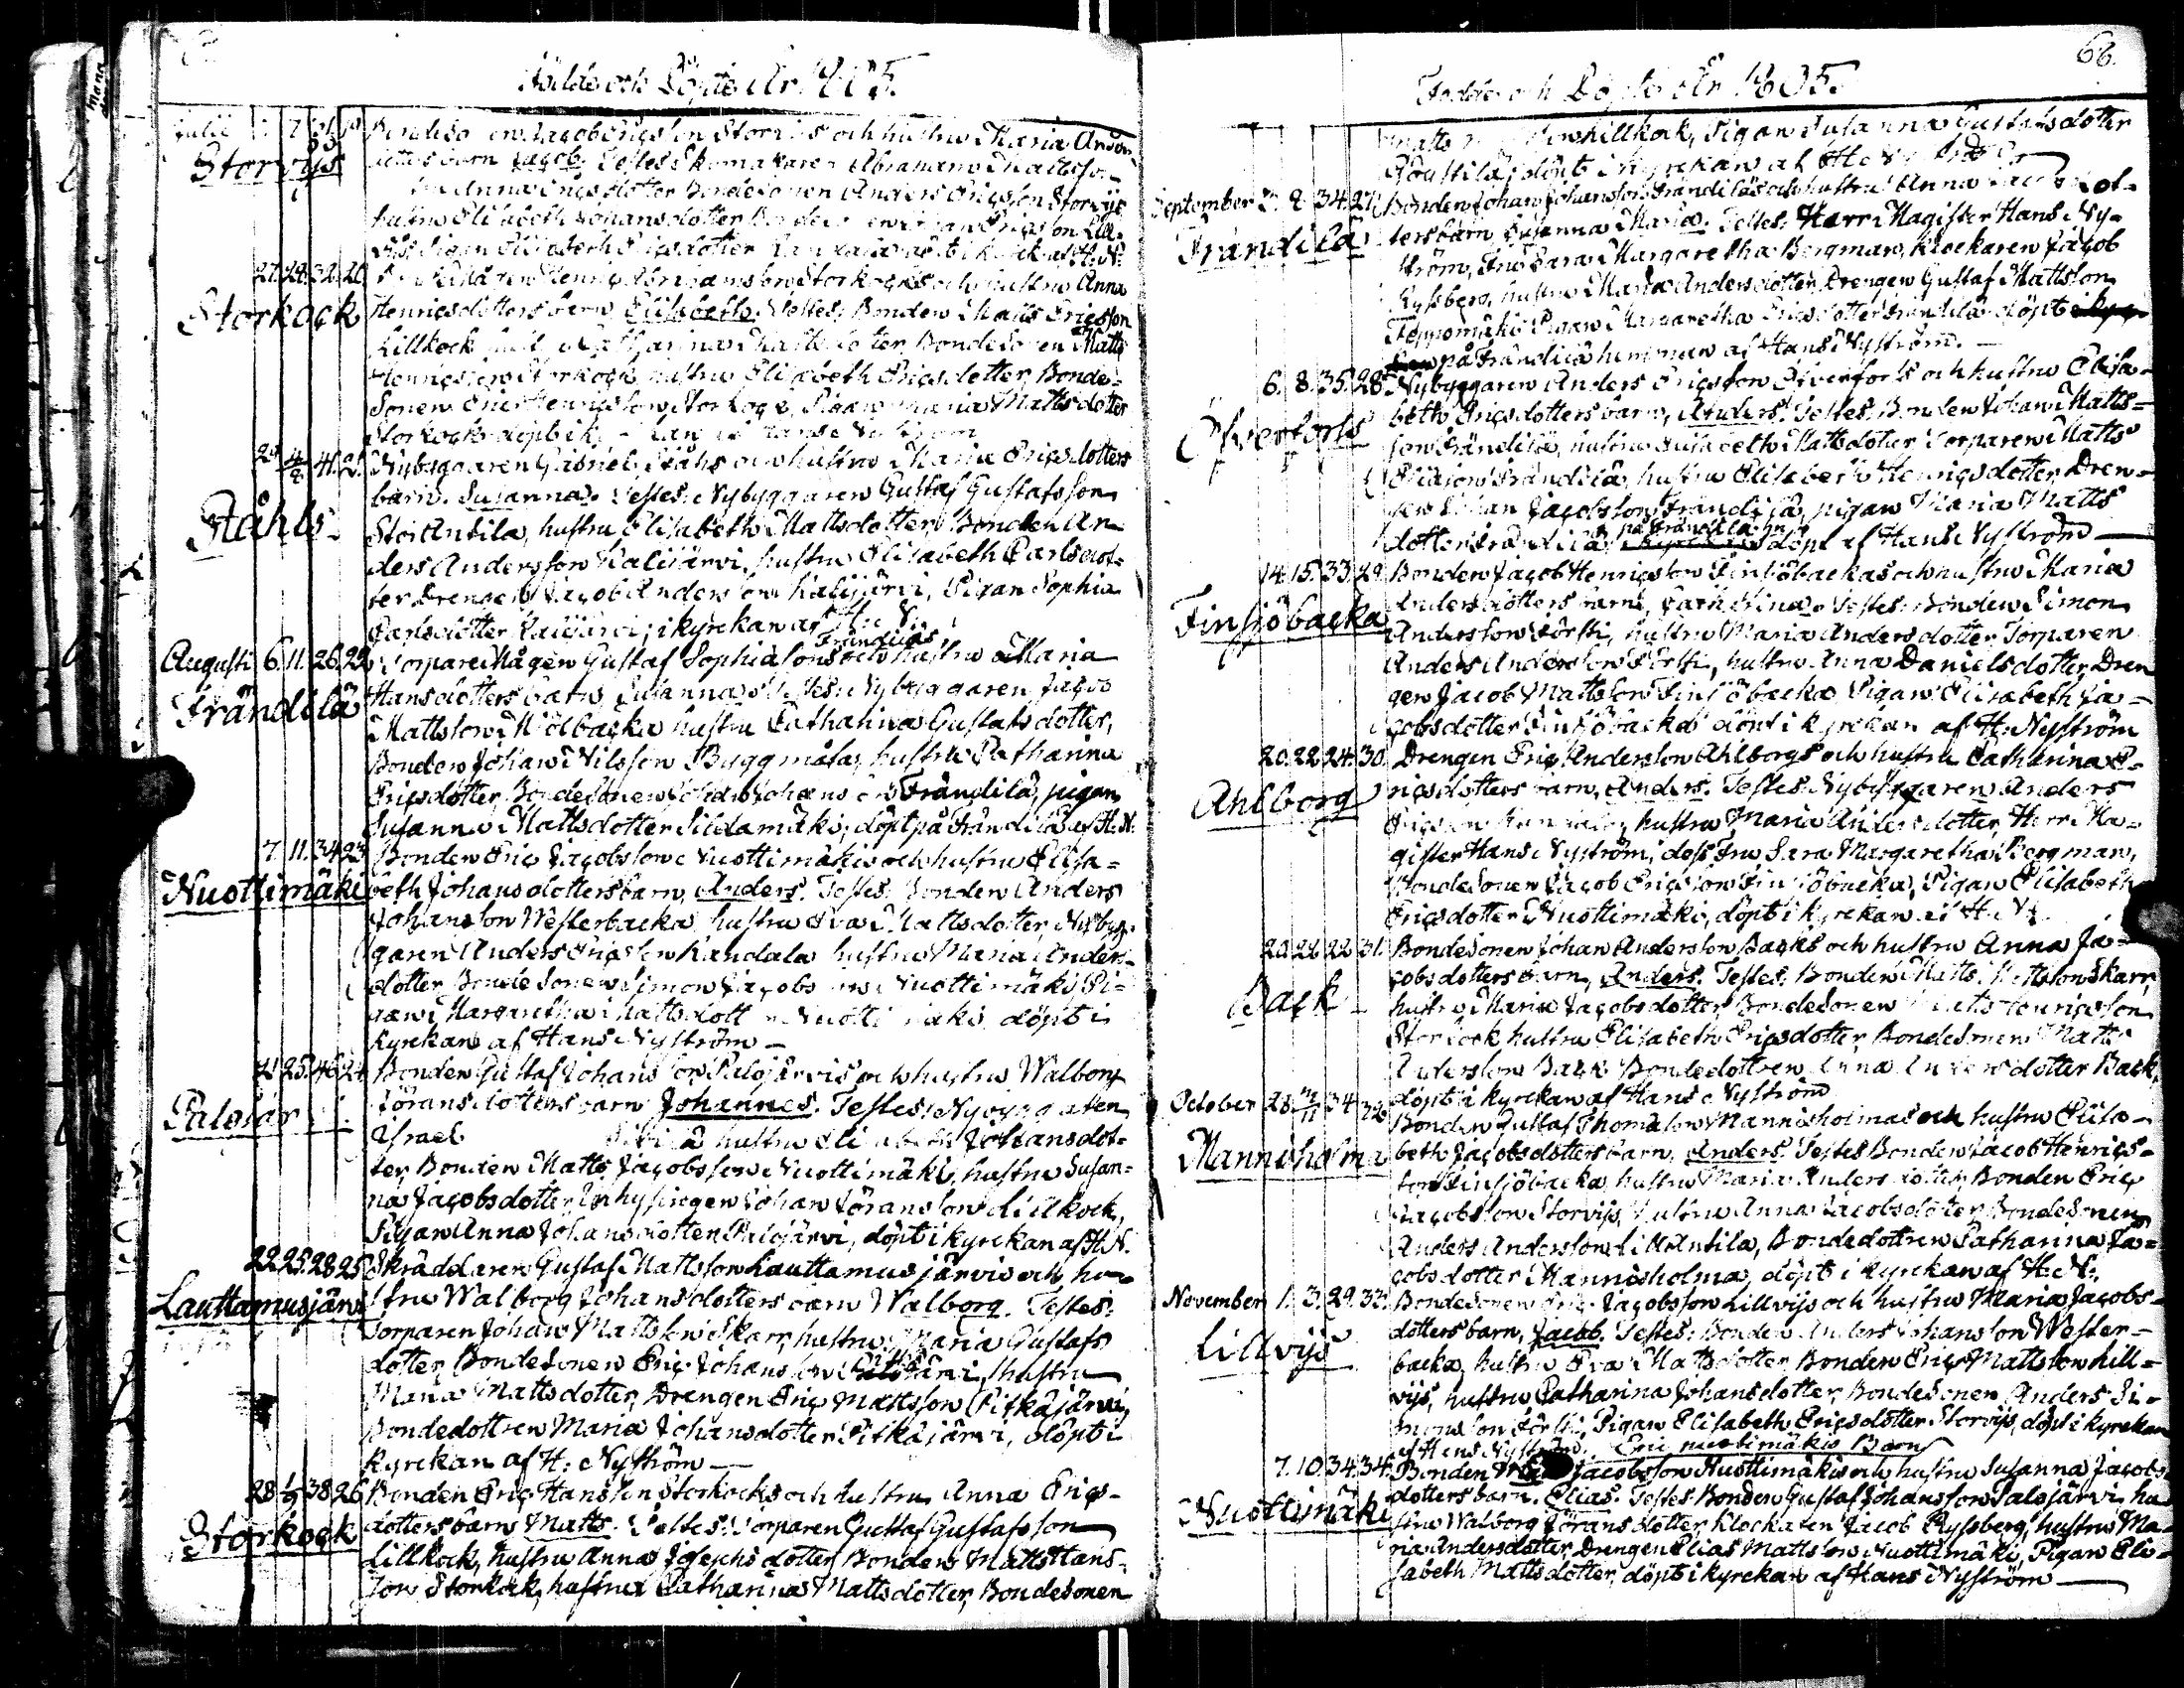 Födde och Döpte År 1805.
Julii
Storvijs
Jacob Ericsson Storvijs och hustru Maria Anders
dotters barn Jacob. Testes Skomakaren Abraham Mattsson
Anna Ericsdotter Bondesonen Anders Ericsson Storvijs
hustru Elisabeth Johansdotter
27. 28. 32. 20.
Storkock
Henric Abrahamsson Storkocks och hustru Anna
Henricsdotters barn Elisabeth. Testes: Bonden Matts Ericsson
Lillkock Catharina Mattsdotter, Bondesonen Matts
Henricsson Storkock, hustru Elisabeth Ericsdotter, Bonde-
sonen Eric Henricsson Storkock, Pigan Maria Mattsdotter
Storkock döpt i
Ståhls
Nybyggaren Gabriel Ståhls och hustru Maria Ericsdotters
barn. Susanna. Testes: Nybyggaren Gustaf Gustafsson
StorAntila, hustru Elisabeth Mattsdotter, Bonden An-
ders Andersson Kalijärvi, hustru Elisabeth Carlsdot-
ter, Drengen Jacob Andersson Kalijärvi, Pigan Sophia
Carlsdotter Kalijärvi; i kyrkan af
Augusti 6. 11. 26. 22.
Frändilä
Frändiläs
Torpare Mågen Gustaf Sophiason och hustru Maria
Hansdotters barn, Susanna. Testes: Nybyggaren Jacob
Mattsson Mjölbacka hustru Catharina Gustafsdotter,
Bonden Johan Nilsson Byggmästar, hustru Catharina
Ericsdotter, Bondesonen Johan Johansson Frändilä, pigan
Susanna Mattsdotter Sildamäki, döpt på Frändilä af H. N.
7. 11. 34. 23.
Nuottimäki
Bonden Eric Jacobsson Nuottimäkis och hustru Elisa-
beth Johansdotters barn, Anders. Testes: Bonden Anders
Johansson Westerbacka hustru Eva Mattsdotter, Nybyg-
garen Anders Ericsson Kandala hustru Maria Anders-
dotter, Bondesonen Simon Jacobsson Nuottimäki, Pi-
gan Margaretha Mattsdotter Nuottimäki, döpt i
kyrckan af Hans Nyström
Palojärvi
Bonden Gustaf Johansson Palojärvis och hustru Walborg
Jöransdotters barn Johannes. Testes: Nybyggaren
Israel hustru Elisabeth Johansdot-
ter, Bonden Matts Jacobsson Nuottimäki, hustru Susan-
na Jacobsdotter, Inhysingen Johan Jöransson Lillkock,
Pigan Anna Johansdotter Palojärvi, döpt i kyrkan af H. N.
22. 25. 28. 25.
Lauttamusjärvi
Skräddaren Gustaf Mattsson Lauttamusjärvis och hu-
stru Walborg Johansdotters barn Walborg. Testes:
Torparen Johan Mattsson Skarr, hustru Maria Gustafs
dotter, Bondesonen Eric Johansson Pitkäjärvi, hustru
Maria Mattsdotter, Drengen Eric Mattsson Pitkäjärvi,
Bondedottren Maria Johansdotter Pitkäjärvi, döpt i
kyrckan af H: Nyström
28 1/9 38 26
Storkock
Bonden Eric Hansson Storkocks och hustru Anna Erics-
dotters barn Matts. Testes: Torparen Gustaf Gustafsson
Lillkock, hustru Anna Josephsdotter, Bonden Matts Hans-
son Storkock, hustru Catharina Mattsdotter, Bondesonen
66.
Födde och Döpte År 1805.
Matts Lillkock, Pigan Susanna Gustafsdotter
döpt i kyrckan af
September 2. 8. 34. 27.
Frändilä
Bonden Johan Johansson Frändiläs och hustru Anna Jacobsdot-
ters barn Susanna Maria. Testes: Herr Magister Hans Ny-
ström, Fru Sara Margaretha Bergman, Klockaren Jacob
Ryssberg, hustru Maria Andersdotter, Drengen Gustaf Mattsson
Pigan Margaretha Ericsdotter Frändilä, döpt
på Frändilä hemman af Hans Nyström.
6. 8. 35. 28.
Öfverfors
Nybyggaren Anders Ericsson Öfverfors och hustru Elisa-
beth Ericsdotters barn, Anders. Testes: Bonden Johan Matts-
son Frändilä, hustru Elisabeth Mattsdotter, Torparen Matts
Eliason Frändilä, hustru Elisabeth Henricsdotter, Dren-
gen Johan Jacobsson Frändilä, pigan Maria Matts
på Frändilä hn
dotter Frändilä; döpt af Hans Nyström
14. 15. 33. 29.
Finsjöbacka
Bonden Jacob Henricsson Finsjöbackas och hustru Maria
Andersdotters barn, Catharina. Testes: Bonden Simon
Andersson Försti, hustru Maria Andersdotter, Torparen
Anders Andersson Försti, hustru Anna Danielsdotter, Dren
gen Jacob Mattsson Finsjöbacka, Pigan Elisabeth Ja-
cobsdotter Finsjöbacka döpt i kyrckan af H. Nyström
20. 22. 24. 30.
Ahlborg
Drengen Eric Andersson Ahlborgs och hustru Catharina E-
ricsdotters barn, Anders. Testes: Nybyggaren Anders
Ericsson Kandala, hustru Maria Andersdotter, Herr Ma-
gister Hans Nyström, dess Fru Sara Margaretha Bergman,
Bondesonen Jacob Ericsson Finsjöbacka, Pigan Elisabeth
Ericsdotter Nuottimäki, döpt i kyrckan af H. N.
20. 26. 22. 31.
Back
Bondesonen Johan Andersson Backs och hustru Anna Ja-
cobsdotters barn, Anders. Testes: Bonden Matts Mattsson Skarr,
hustru Maria Jacobsdotter Bondesonen Matts Henricsson
Storkock hustru Elisabeth Ericsdotter, Bondesonen Matts
Andersson Back Bondedottren Anna Andersdotter Back,
döpt i kyrckan af Hans Nyström
October
Mannisholma
Bonden Gustaf Thomasson Mannisholmas och hustru Elisa-
beth Jacobsdotters barn, Anders. Testes Bonden Jacob Henrics-
son Finsjöbacka, hustru Maria Andersdotter, Bonden Eric
Jacobsson Storvijs, hustru Anna Jacobsdotter, Bondesonen
Anders Andersson LillAntila, Bondedottren Catharina Ja-
cobsdotter Mannisholma, döpt i kyrckan af H: N:
November 1. 3. 29. 33.
Lillvijs
Bondesonen Eric Jacobsson Lillvijs och hustru Maria Jacobs-
dotters barn, Jacob. Testes: Bonden Anders Johansson Wester-
backa, hustru Eva Mattsdotter, Bonden Eric Mattsson Lill-
vijs, hustru Catharina Johansdotter, Bondesonen Anders Si-
monsson Försti, Pigan Elisabeth Ericsdotter Storvijs, döpt i kyrckan
af Hans Nyström. Eric nuottimäkis Barn
7. 10. 34. 34.
Nuottimäki
Bonden Jacobsson Nuottimäkis och hustru Susanna Jacobs
dotters barn. Elias. Testes: Bonden Gustaf Johansson Palojärvi hu
stru Walborg Jöransdotter, Klockaren Jacob Ryssberg, hustru Ma-
ria Andersdotter, Drengen Elias Mattsson Nuottimäki, Pigan Eli-
sabeth Mattsdotter, döpt i kyrckan af Hans Nyström